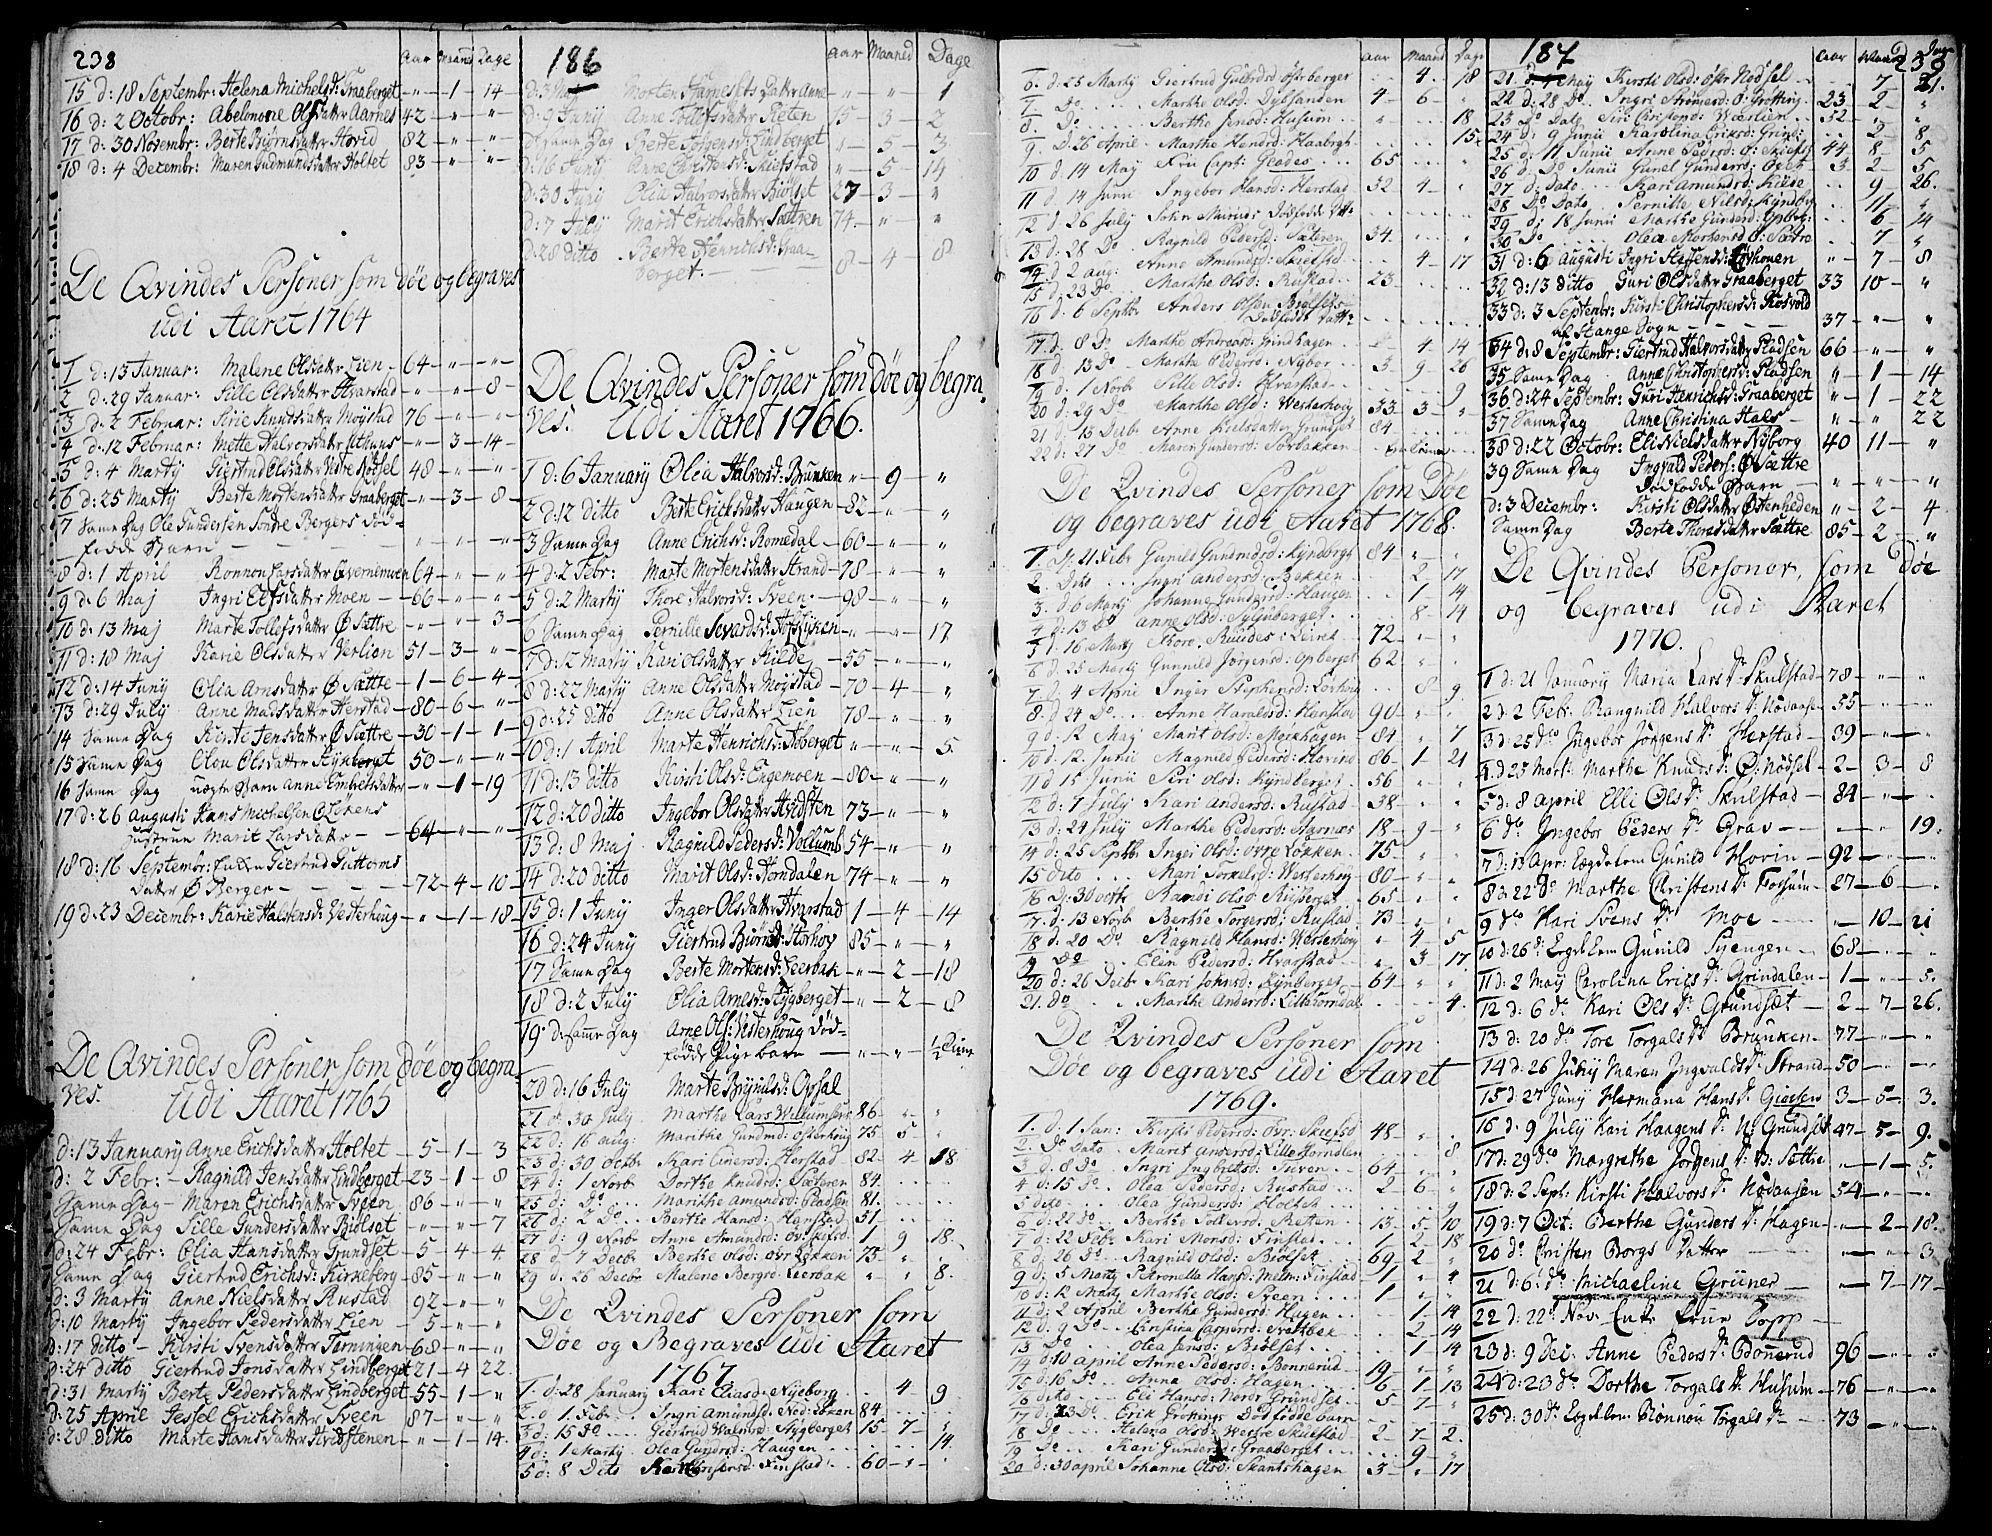 238
Aar Maaned Dage
15 d: 18 Septembr: Helena Michelsd: Graaberget - " - 1 - 14 -
16 d: 2 Octobr: Abelonone Olsdatter Aarnes 42 - " - " -
17 d: 30 Novembr: Berte Biørnsdatter Hovid 82 - " - " -
18 d: 4 Decembr: Maren Gudmundsdatter Holtet 83 " - " -
De Qvindes Personer som døe og begraves
udi Aaret 1764
1 d: 13 Januar: Malene Olsdatter Lien - 64 - " - " -
2 d: 29 Januar: Sille Olsdatter Hvarstad - " - " - 8 -
3 d: 2 Februar: Sirie Knudsdatter Møystad 76 - " - " -
4 d: 12 Februar: Mette Halvorsdatter - " - 3 - 14 -
5 d: 4 Martÿ Giertrud Olsdatter Nødsel 48 - " - " -
6 d: 25 Martÿ Berte Mortensdatter Graaberget - " - 3 - 8 -
7 Samme Dag Ole Gundersen Søndre Bergers død-
fødde Barn - " - " - "
8 d: 1 April Ronnou Larsdatter Qvernemoen 64 - " - "
9 d: 6 Maj Ingri Olsdatter Moen - 66 - " - "
10 d: 13 Maj Marte Tollefsdatter Ø Sættre - " - " - 3 -
11 d: 18 Maj Karie Olsdatter Verlien 51 - 3 - "
12 d: 14 Junÿ Olia Arnsdatter Ø Sættre - 1 - 6 - 4 -
13 d: 29 Julÿ Anne Madsdatter Herstad - 80 - 6 - "
14 Samme Dag Kirste Jensdatter Ø Sættre - 30 - 1 - 1 -
15 Samme Dag Olou Olsdatter Stÿgberget 50 - " - "
16 Samme Dag uægte Barn Anne Embretsdatter - " - 1 - 19
17 d: 26 Augusti Hans Michelsen Ø Løkens
Hustrue Marit Larsdatter - 64 - " - "
18 d: 16 Septembr: Enken Giertrud Guttorms
datter Ø Berger - 72 - 4 - 10 -
19 d: 23 Decembr: Karie Halstensd: Vesterhoug - " - 1 - 18 -
De Qvindes Personer som døe og begra
ves. udi Aaret 1765
d: 13 Januarÿ Anne Erichsdatter Holtet - 5 - 1 - 3
d: 2 Febr: - Ragnild Jensdatter Lindberget - 23 - 1 - 8
Samme Dag - Maren Erichsdatter Sveen 86 - " - "
Samme Dag Sille Gundersdatter Biølset - " - " - 7
d: 24 Febr: Olia Hansdatter Grundset - 5 - 4 - 4
Samme Dag Giertrud Erichsd: Kirkeberg - 85 - " - "
d: 3 Martÿ Anne Nielsdatter Rustad 92 - " - "
d: 10 Martÿ Ingebor Pedersdatter Lien - 5 - " - "
d: 17 ditto - Kirsti Svensdatter Terningen 68 - " - "
d: 24 ditto Giertrud Jonsdatter Lindberget 21 - 4 - 22
d: 31 Martÿ Berte Pedersdatter Lindberget 55 - 1 - "
d: 25 April Jessel Erichsdatter Sveen 87 - " - "
d: 28 ditto Marte Hansdatter Hvidstenen - " - 1 - 14
186
Aar Maaned Dage
Morten datter Anne - " - " - 1
d: 9 Junÿ Anne Tollefsdatter Reten 15 - 3 - 2
Samme Dag Berte Jørgensd: Lindberget " - 5 - 3
d: 16 Junÿ Anne Christensd: Skiefstad " - 5 - 14
d: 30 Junÿ Olia Halvorsdatter Biølset 27 - 3 - "
d: 7 Julÿ Marit Erichsdatter Sættren 74 - " - "
d: 28 ditto Berte Henrichsd: Graa-
berget - 8 - 4 - 8
De Qvindes Personer som døe og begra
ves. Udi Aaret 1766.
1 d: 6 Januarÿ Olia Halvorsd: Brunken " - 9 - "
2 d: 12 ditto Berte Erichsdatter Haugen - 82 - " - "
3 Samme Dag Anne Erichsd: Romedal - 60 - " - "
4 d: 2 Febr: Marte Mortensdatter Strand - 78 - " - "
5 d: 2 Martÿ Thore Halvorsd: Sveen - 98 - " - "
6 Samme Dag Pernille Sevardsd: - " - " - 17
7 d: 12 Martÿ Kari Olsdatter Kilde - 55 - " - "
8 d: 22 Martÿ Anne Olsdatter Møystad - 70 - 4 - "
9 d: 25 ditto Anne Olsdatter Lien 78 - " - "
10 d: 1 April Marte Henrichsd: Aaberget - " - " - 5
11 d: 13 ditto Kirsti Olsd: Engemoen - 80 - " - "
12 d: 20 ditto Ingebor Olsdatter Hvidsten 73 - " - "
13 d: 8 Maj Ragnild Pedersd: Vollumb 54 - " - "
14 d: 20 ditto Marit Olsd: Horndalen 74 - " - "
15 d: 1 Junÿ Inger Olsdatter Hvarstad 1 - 4 - 14
16 d: 24 Junÿ Giertrud Biørnsd: Storhov 85 - " - "
17 Samme Dag Berte Mortensd: Leerbak - " - 2 - 18
18 d: 2 Julÿ Olia Arnesd: Stÿgberget - " - 2 - 8
19 d: Samme Dag Arne Ols: Vesterhoug død-
fødde Pige barn - " - " - ½ Time
20 d: 16 Julÿ Marte Brÿnilsd: Opsal
21 d: 30 Julÿ Marthe Lars Willumsens 86 - " - "
22 d: 16 aug: Marithe Gundmd: Østerhoug 75 - 5 - "
23 d: 30 Octbr Kari Einersd: Herstad - 82 - 4 - 18
24 d: 1 Novb Dorthe Knudsd: Sæteren 84
25 d: Do Marithe Amundsd: Pladsen 81
26 d: 2 Do Berthe Hansd: Harstad 51
27 d: 9 Novbr Anne Amundsd: 1 9 18
28 d: 7 Decbr Berthe Olsd: Øvr Løkken 73
29 d: 26 Decbr Malene Bergsd: Leerbak " " 8.
De Qvindes Personer som
Døe og Begraves Udi Aaret
1767.
1. d: 28 Januarÿ Kari Eliasd: Nÿeborg . . 4 - 9
2. d: 1 Febr . . Ingri Amundsd: Nod: Løken 84
3 d: 15 Do . . . Giertrud Stÿgberget 15 - 7 - "
4 d: 1 Martÿ Olea Gundersd: Haugen . . . . 14
5 d: 8 Dito Finstad: - 60 - " - .
Aar Maaned Dage
6. d: 25 Martÿ Giertrud Øst: berger . . 4 18
7. Do . . Marthe Olsd: Dÿlsanden 4 - 6 - "
8. Do . . Berthe Jensd: Husum " . . 18
9. d: 26 April Marthe Hendrsd: Haabergh . . 15
10 d: 14 Maÿ Fru Capt: Glades . . 65
11 d: 14 Junii Ingebor Hansd: Herstad 52 4 "
12 d: 26 Julÿ Dødfødde
13 d: 28 Do Ragnild Pedersd: Sæteren 34
14 d: 2 aug: Anne Amundsd: Skiefstad . . 4 - 17
15 d: 23 Do Marthe Olsd: Rustad 23
16 d: 6 Septbr Anders Olsen
Dødfødde datt:
17. d: 8 Do Marthe Andreasd: Grindhagen 4 14
18 d: 13 Do Marthe Pedersd: Nÿbor . . 3 - 9 - 26
19 d: 1 Novbr Sille Olsd: Hvarstad . . . 9
20 d: 29 Do Marthe Olsd: Westerhoug 33 - 3 - "
21 d: 13 Decbr Anne Nielsdatter Grundset 84
22 d: 27 Do Maren Gundersd: Sørbakken
De Qvindes Personer som Døe
og begraves udi Aaret 1768.
1. d: 21 Febr Gunild Gundmdsd: Kÿndbergh 84 " "
2. Dato . . Ingri Andersd: Bekken . . 2 - 17
3. d: 6 Martÿ Johanne Gundersd: Haugen . 1 - 14
4. d: 13 Do Anne Olsd: Sÿljuberget . . 8 - 14
5 d: 16 Martÿ Thore Knudsd: Leiret 72 - " "
6 d: 25 Martÿ Gunnild Jørgensd: Opberget 62 " "
7. d: 4 April Inger Stephensd: Løvhoug . . 8 - 9
8. d: 24 Do . . Anne Haraldsd: Herstad 90 - " "
9 d: 12 Maÿ Marit Olsd: Mørkhagen 84 " 7
10 d: 12 Junii Magnild Pedersd: Hovind 86 - 1 - 21
11 d: 15 Junii Siri Olsd: Kÿndberget 56 " "
12 d: 7 Julÿ Kari Andersd: Rustad 38 - " "
13 d: 24 Julÿ Marthe Pedersd: Aarnæs 18 - 9 - "
14 d: 25 Septbr Ingri Olsd: Øvre Løkken 75 " "
15 dito . . Mari Torkelsd: Westerhoug 80 - " "
16 d: 30 Octbr Randi Olsd: Riisberget 65 - " "
17. d: 13 Novb Berthe Torgersd: Rustad 73 - " "
18 d: 20 Do Ragnild Hansd: Westerhoug " 4 - 5
19 Do . . Elin Pedersd: Hvarstad . . " 3 17
20 d: 26 Decbr Kari Johnsd: Kÿnberget 64 " "
21. Do . Marthe Andersd: Lillehorndal . . 4.
De Qvindes Personer som
Døe og begraves udi Aaret
1769.
1. d: 1 Jan: Kirsti Pedersd: Øvr: Skiefsd 48 " "
2. Do Dato . Marit Andersd: Lille Horndlen . . 8
3 d: 8 Do Ingri Ingbretsd: Tuven . 64 " "
4 d: 15 Do . Olea Pedersd: Rustad . . 2 - 6 "
5 dito . . Olea Gundersd: Holteh . . . 9
6 d: 22 Do . Berthe Tollevsd: Retten . . 13 - 5 - 10
7 d: 22 Febr Kari Monsd: Finstad . . 1 - 2 - 18
8 d: 26 Do . Ragnild Olsd: Biølset . . 69 - 2 "
9 d: 5 Martÿ Petronella Hansd: Melm: Finstad - 1 " "
10 d: 12 Martÿ Marthe Olsd: Sveen . . . 1 " "
11 d: 2 April Berthe Gundersd: Hagen . . 1 - 14
12 d: 9 Do . Cirstina Caspersd: . . 2 - 14
13 Do . . Olea Jensd: Biølset . . . 1 14
14 d: 10 April Anne Pedersd: Bonnerud . 19 - " "
15 d: 16 Do . Anna Olsd: Hagen . . 6 1 - 13
16 dito . . Eli Hansd: Nordr Grundset . . 5 7 "
17 d: 23 Do Erik Grøtting Dødfødde barn
18 Do . . Helena Olsd: Westre Skiefstad 2 - 7 - 2.
19 Do . . Kari Gundersd: Graaberget . . 9 - "
20 d: 30 April Johanne Olsd: Skantshagen . 3 - " 17
187
239
Aar Maand Dage
21 d: Maÿ Kirsti Olsd: Østr Nødsel . . 7 21.
22 d: 28 Do . Ingri Størmersd: Ø: Grøtting. 23 - 2 - "
23 Do Dato Siri Christophd: Wærlien . 52 - " "
24 d: 9 Junii Karolina Eriksd: Grind: . 2 - 8
25 d: 11 Junii Anne Pedersd: Ø: Skiefsd 44 8 - 5
26 d: Do Junii Gunel Gundersd: Opset . 3 - 2 - 5
27 d: Dato . . Kari Amundsd: Kilde . . 9 - 26.
28 Do Dato . Pernille Nilsd: Kÿndby . . 11 - "
29 d: 18 Junii Marthe Gundersd: Opberg: . 6 - 14
30 Do . . Olea Mortensd: Ø: Sætre . . 7 "
31 d: 6 Augusti Ingri Steffensd: Løvhouen " - 7 - 8
32 d: 13 ditto Guri Olsdatter Graaberget 33 10 - "
33 d: 3 Septembr: Kirsti Christophersd: Kosvold
af Stange Sogn - 37 - " - "
34 d: 8 Septembr: Giertrud Halvorsdatter Pladsen 66 - " - "
35 Samme Dag Anne Christophersd: Pladsen " - 1 - 14
36 d: 24 Septembr: Guri Henrichsd: Graaberget " - 1 - 22
37 Samme Dag Anne Christina Hals - " - " 22
38 d: 22 Octobr: Eli Nielsdatter Nÿborg 40 11 - "
39 Samme Dag Ingvald Peders: Ø Sættre
Dødfødde Barn - " - " - "
d: 3 Decembr: Kirsti Olsdatter Østenheden " - 2 - 4
Samme Dag Berte Thoresdatter Sættre 85 - 2 - "
De Qvindes Personer, som Døe
og begraves udi Aaret
1770.
1 d: 21 Januarÿ Maria Lars Dr Skulstad - 78 - " - "
2 d: 2 Febr. Rangnild Halvors Dr Nodansen 55 - " - "
3 d: 25 do Ingebor Jørgens Dr Herstad - 39 - " "
4 d: 25 Mart: Marthe Knuds Dr Ø: Nødsel - 2 - 3 - 8
5 d: 8 April Elli Ols Dr Skulstad - 84 - " - .
6 do Ingebor Peders Dr Grav - - " 19.
7 d: 15 Apr: Legdelem Gunild Hovin - 92 - " - .
8 d: 22 do Marthe Christens Dr Torshuun - 27 - 6 - .
9 do Kari Svens Dr Moe - " 10 - 21
10 d: 26 do Legdelem Gunild Svengen - 68 - " - .
11 d: 2 Maÿ Carolina Erics Dr Grindalen - 1 - " - 5.
12 d: 6 do Kari Ols Dr Grundset - 2 - 7 - 26.
13 d: 20 do Tore Torgals Dr Brunken - 77 - " - .
14 d: 26 Junÿ Maren Ingvalds Dr Strand - 50 - " - .
15 d: 27 Junÿ Hermana Hans Dr Giøesen 3 - 5 - 3.
16 d: 9 Julÿ Kari Haagens Dr N: Grundset 47 - 5 - 9.
17 d: 29 do Margrethe Jørgens Dr Ø: Sættre " - 1 - 5.
18 d: 2 Sept: Kirsti Halvors Dr Nodansen - 54 - " - .
19 d: 7 Oct: Berthe Gunders Dr Hagen - " - 2 - 18.
20 do Christen Borgs Datter - " - " - 3.
21 d: 6: do Michaeline Grüner - " - 7 - 17 -
22 d: 22 Nov. Enke Frue Dopp -
23 d: 9 Dec: Anne Peders Dr Bonnerud 96 - " - .
24 d: 23 do Dorthe Torgals Dr Husum - 76 - " - .
25 d: 30 do Legdelem Rönnou Torgals Dr - 73 - " - .